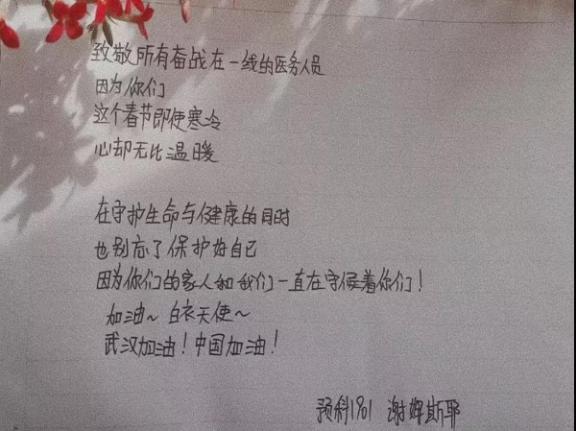 致敬所有奋战在一线的医务人员
因为你们
这个春节即使寒冷
心却无比温暖
在守护生命与健康的同时
也别忘了保护好自己
因为你们的家人和我们一直在守候着你们！
加油～ 白衣天使～
武汉加油！中国加油！
预科1901 谢婷斯耶